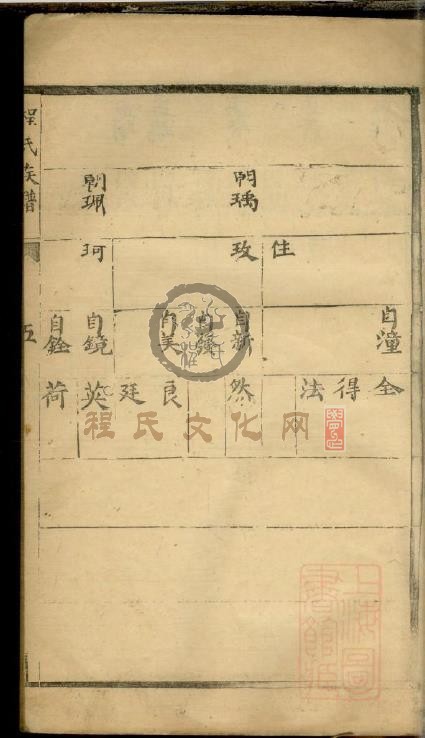 程氏族譜
朝瑀
朝珮
住
玫
珂
自潼
自新
自強
自美
自鏡
自銓
全
得
法
然
良
廷
英
荷
五
程氏文化网
上海图書館藏